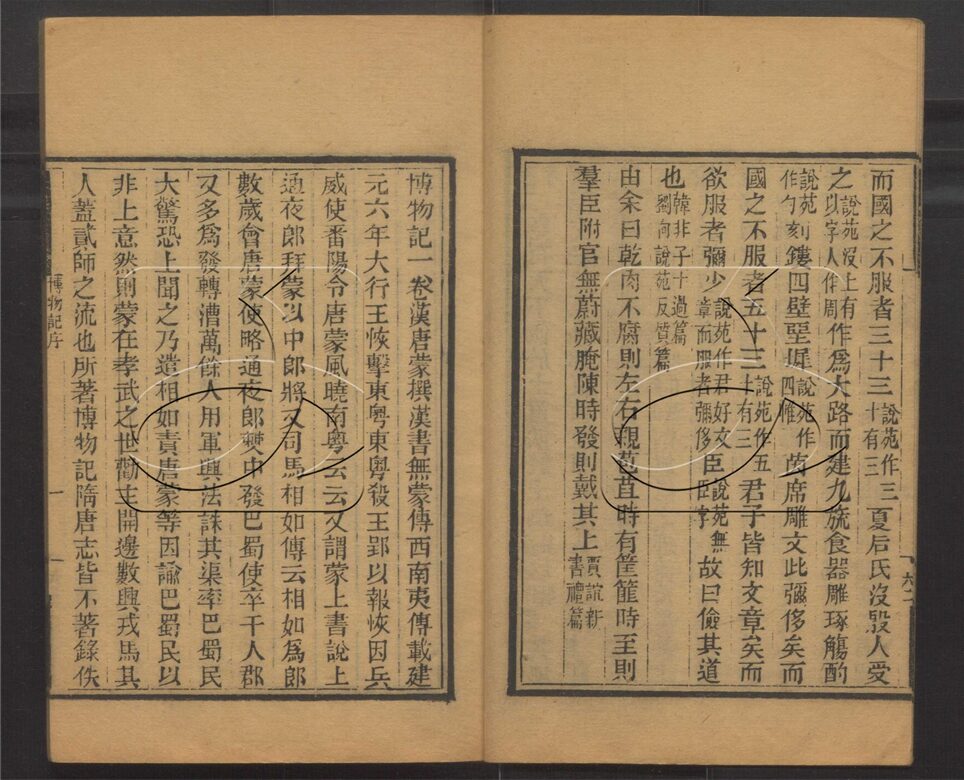 而國之不服者三十三說苑作三十有三夏后氏沒殷人受
之說苑沒上有以字人作周作爲大路而建九旒食器雕琢觴酌
說苑作勺刻鏤四壁堊墀說苑作四帷茵席雕文此彌侈矣而
國之不服者五十三說苑作五十有三君子皆知文章矣而
欲服者彌少說苑作君好文章而服者彌侈臣說苑無臣字故曰儉其道
也韓非子十過篇劉向說苑反質篇
由余曰乾肉不腐則左右親苞苴時有筐篚時至則
羣臣附官無蔚藏腌陳時發則戴其上賈誼新書禮篇
六二
博物記一卷漢唐蒙撰漢書無蒙傳西南夷傳載建
元六年大行王恢擊東粵東粵殺王郢以報恢因兵
威使番陽令唐蒙風曉南粵云云又謂蒙上書說上
通夜郎拜蒙以中郎將又司馬相如傳云相如爲郎
數歲會唐蒙使略通夜郎僰中發巴蜀使卒千人郡
又多爲發轉漕萬餘人用軍興法誅其渠率巴蜀民
大驚恐上聞之乃遣相如責唐蒙等因諭巴蜀民以
非上意然則蒙在孝武之世勸主開邊數興戎馬其
人蓋貳師之流也所著博物記隋唐志皆不著錄佚
博物記序
一